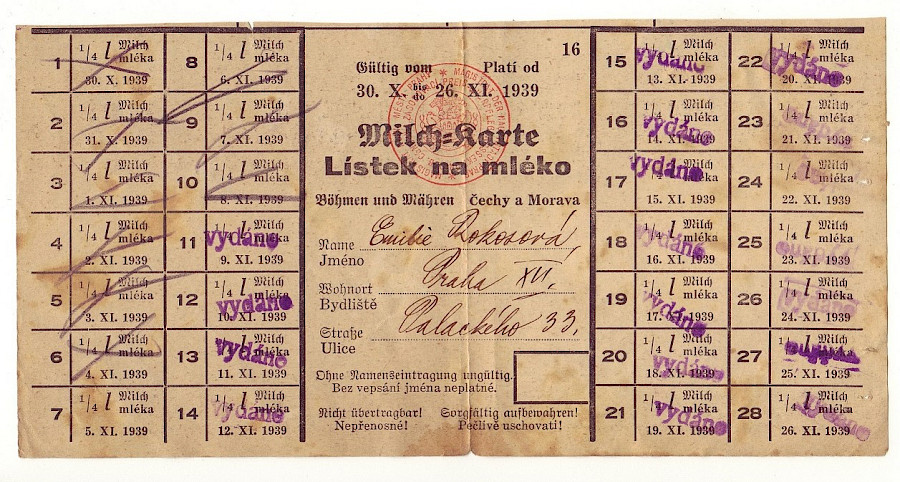 1 1/4 l Milch mléka
30. X. 1939
2 1/4 l Milch mléka
31. X. 1939
3 1/4 l Milch mléka
1. XI. 1939
4 1/4 l Milch mléka
2. XI. 1939
5 1/4 l Milch mléka
3. XI. 1939
6 1/4 l Milch mléka
4. XI. 1939
7 1/4 l Milch mléka
5. XI. 1939
8 1/4 l Milch mléka
6. XI. 1939
9 1/4 l Milch mléka
7. XI. 1939
10 1/4 l Milch mléka
8. XI. 1939
11 1/4 l Milch mléka
vydáno
9. XI. 1939
12 1/4 l Milch mléka
vydáno
10. XI. 1939
13 1/4 l Milch mléka
vydáno
11. XI. 1939
14 1/4 l Milch mléka
vydáno
12. XI. 1939
16
Gültig vom Platí od
30. X. bis do 26. XI. 1939
Milch-Karte
Lístek na mléko
Böhmen und Mähren Čechy a Morava
Name Emilie Rokosová
Jméno
Wohnort Praha XII.
Bydliště
Straße Palackého 33.
Ulice
Ohne Namenseintragung ungültig.
Bez vepsání jména neplatné.
Nicht übertragbar! Sorgfältig aufbewahren!
Nepřenosné! Pečlivě uschovati!
15 1/4 l Milch mléka
vydáno
13. XI. 1939
16 1/4 l Milch mléka
vydáno
14. XI. 1939
17 1/4 l Milch mléka
vydáno
15. XI. 1939
18 1/4 l Milch mléka
vydáno
16. XI. 1939
19 1/4 l Milch mléka
vydáno
17. XI. 1939
20 1/4 l Milch mléka
vydáno
18. XI. 1939
21 1/4 l Milch mléka
vydáno
19. XI. 1939
22 1/4 l Milch mléka
vydáno
20. XI. 1939
23 1/4 l Milch mléka
21. XI. 1939
24 1/4 l Milch mléka
22. XI. 1939
25 1/4 l Milch mléka
vydáno
23. XI. 1939
26 1/4 l Milch mléka
24. XI. 1939
27 1/4 l Milch mléka
vydáno
25. XI. 1939
28 1/4 l Milch mléka
26. XI. 1939